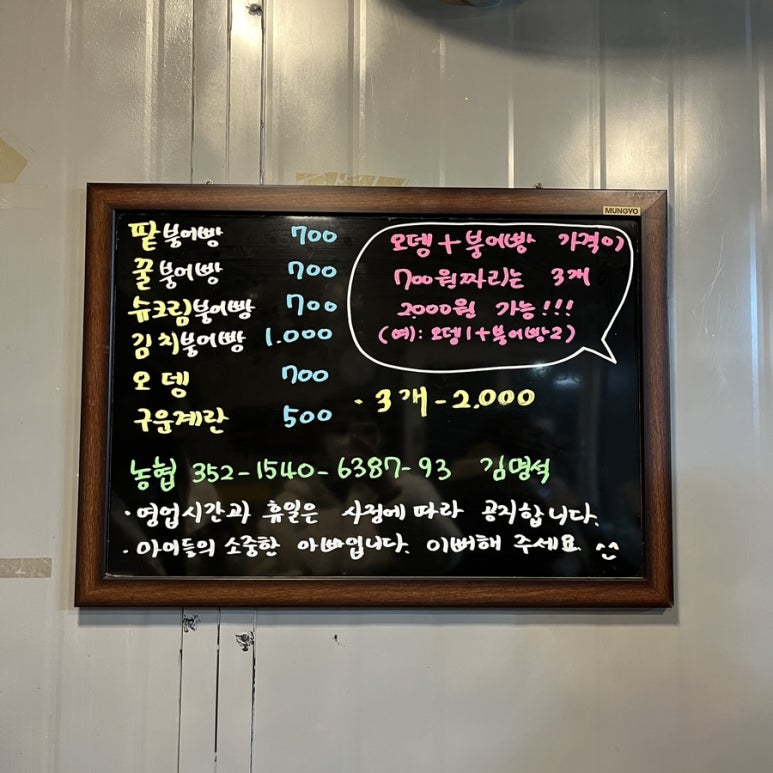 MUNGYO
팥붕어빵 700
꿀붕어빵 700
슈크림붕어빵 700
김치붕어빵 1.000
오뎅 700
구운계란 500
오뎅+붕어빵 가격이
700원짜리는 3개
2000원 가능!!!
(예): 오뎅1+붕어빵2)
· 3개-2.000
농협 352-1540-6387-93 김명석
· 영업시간과 휴일은 사정에 따라 공지합니다.
· 아이들의 소중한 아빠입니다. 이뻐해 주세요 ^^